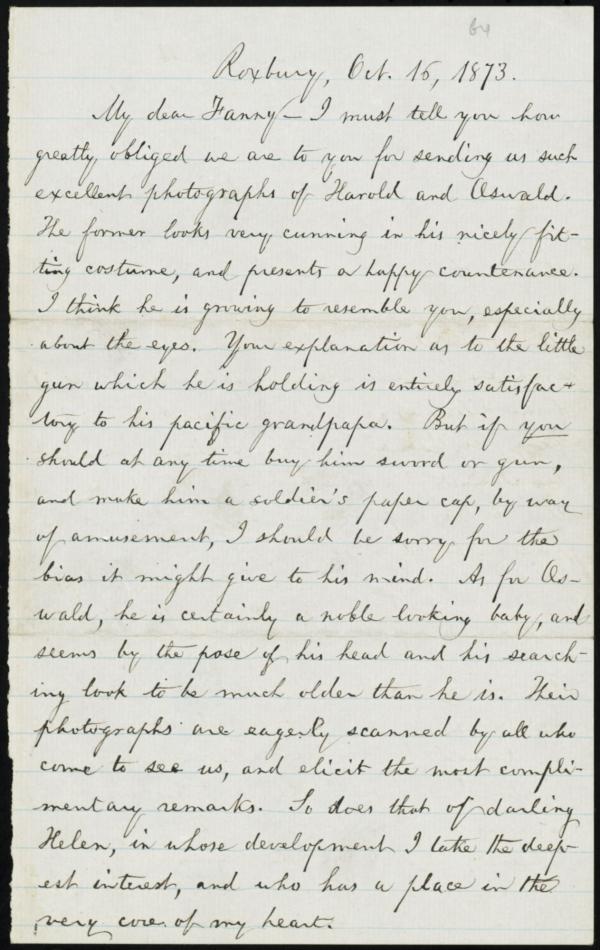 Roxbury, Oct. 15, 1873.
My dear Fanny — I must tell you how
greatly obliged we are to you for sending us such
excellent photographs of Harold and Oswald.
The former looks very cunning in his nicely fit-
ting costume, and presents a happy countenance.
I think he is growing to resemble you, especially
about the eyes. Your explanation as to the little
gun which he is holding is entirely satisfac-
tory to his pacific grandpapa. But if you
should at any time buy him sword or gun,
and make him a soldier's paper cap, by way
of amusement, I should be sorry for the
bias it might give to his mind. As for Os-
wald, he is certainly a noble looking baby, and
seems by the pose of his head and his search-
ing look to be much older than he is. Their
photographs are eagerly scanned by all who
come to see us, and elicit the most compli-
mentary remarks. So does that of darling
Helen, in whose development I take the deep-
est interest, and who has a place in the
very core of my heart.